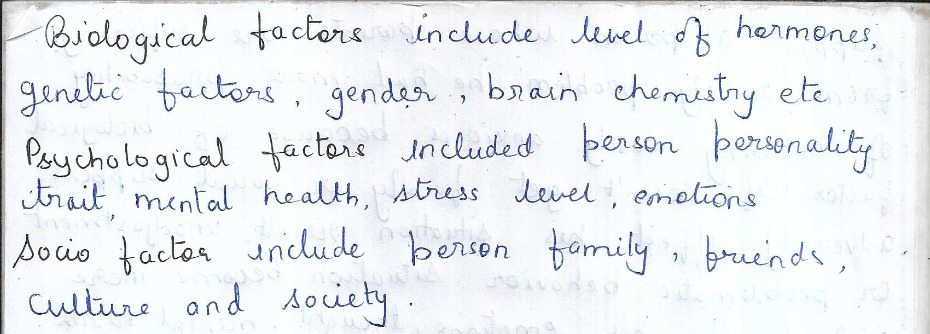 Biological factors include level of hormones,
genetic factors, gender, brain chemistry etc
Psychological factors included person personality
trait, mental health, stress level, emotions
Socio factor include person family, friends,
culture and society.